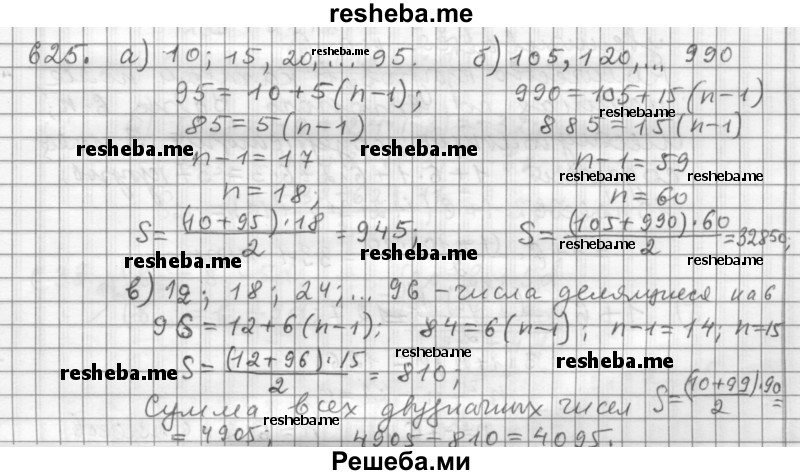 resheba.me
625. а) 10; 15, 20, ... 95. б) 105, 120, ... 990
resheba.me
95 = 10 + 5(n-1); 990 = 105 + 15(n-1)
resheba.me
85 = 5(n-1) 885 = 15(n-1)
resheba.me resheba.me
n-1 = 17 n-1 = 59
resheba.me resheba.me
n = 18; n = 60
resheba.me
S = (10+95)·18 / 2 = 945; S = (105+990)·60 / 2 = 32850;
resheba.me resheba.me
resheba.me resheba.me
в) 12; 18; 24; ... 96 - числа делящиеся на 6
96 = 12 + 6(n-1); 84 = 6(n-1); n-1 = 14; n = 15
resheba.me resheba.me
S = (12+96)·15 / 2 = 810;
resheba.me
Сумма всех двузначных чисел S = (10+99)·90 / 2 =
resheba.me resheba.me
= 4905; 4905 - 810 = 4095.
Решеба.ми